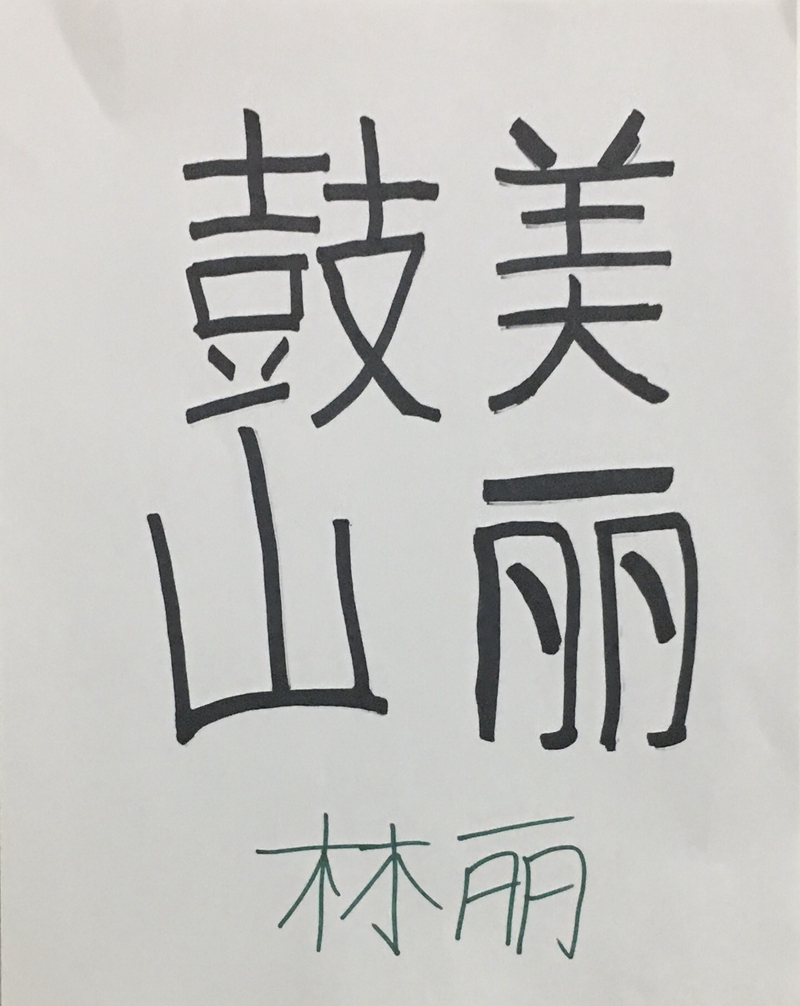 美丽
鼓山
林丽